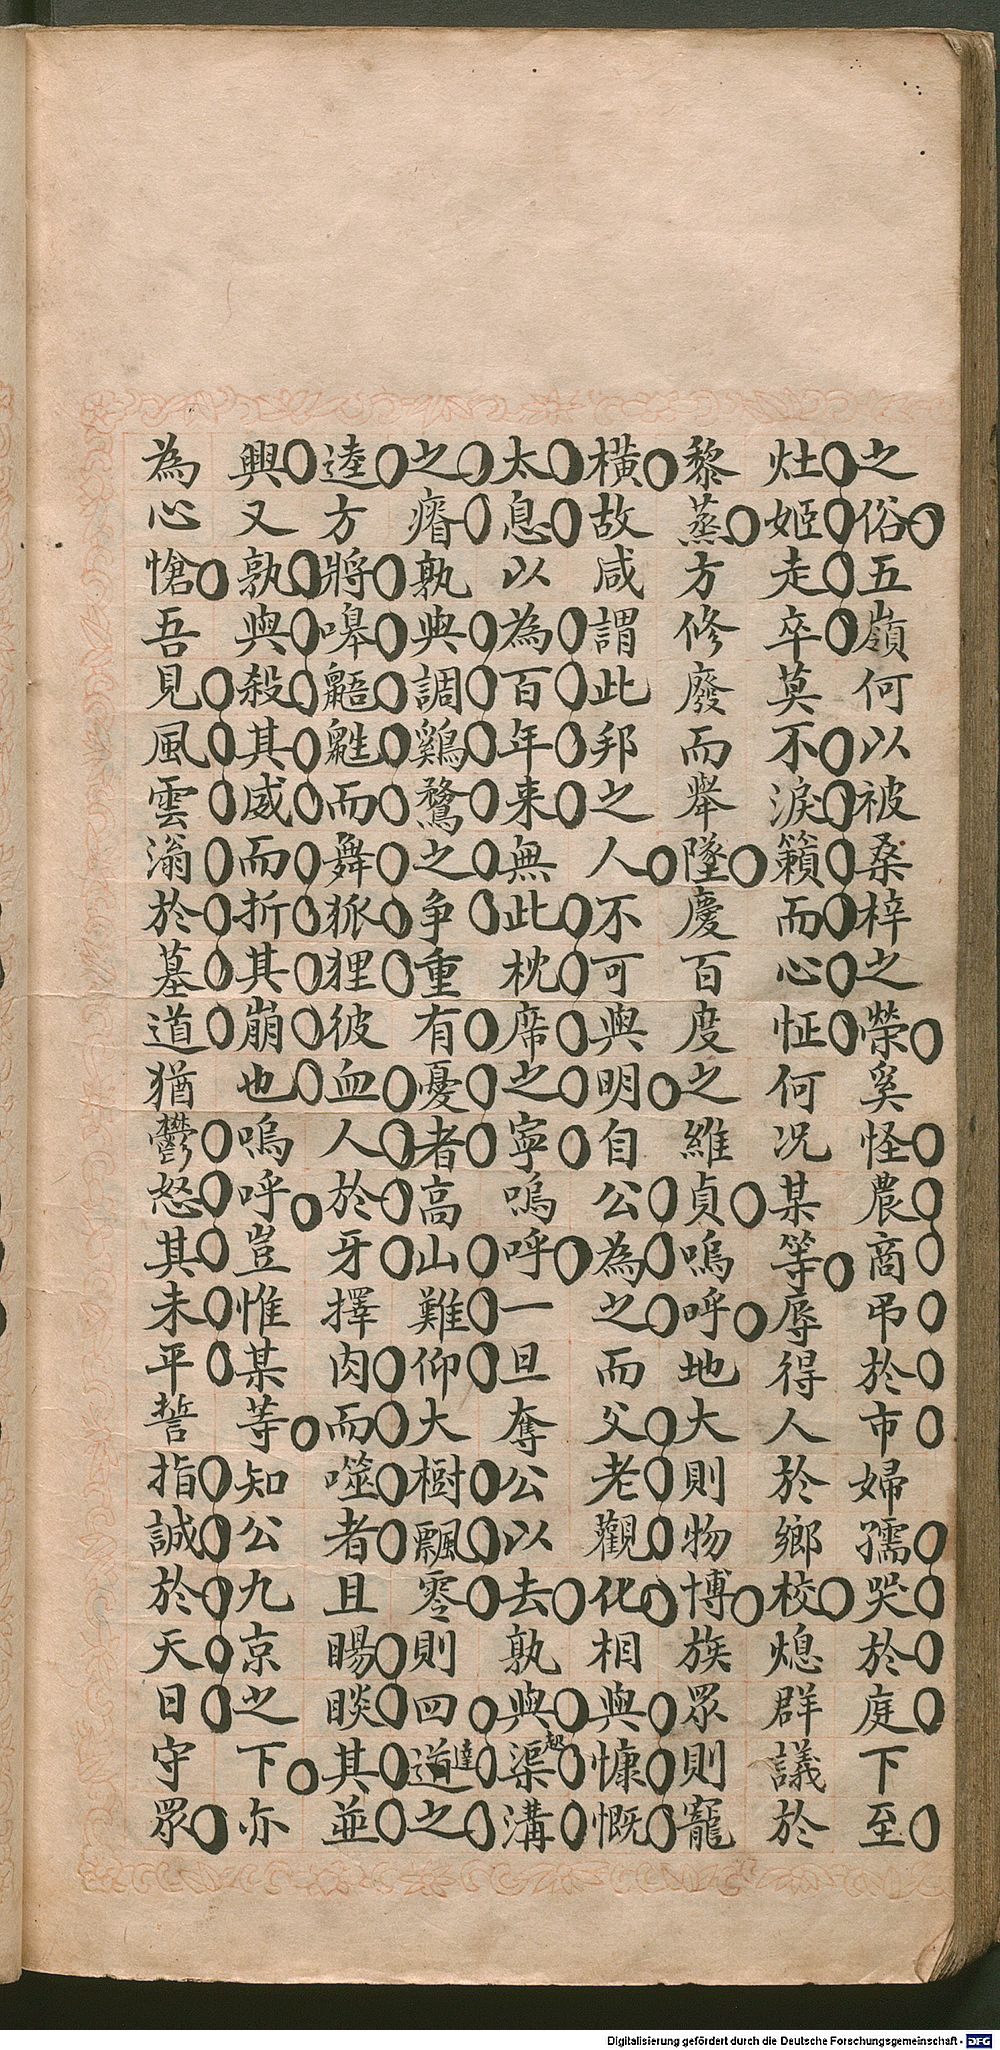 之俗五嶺何以被桑梓之榮奚怪農商弔於市婦孺哭於庭下至
灶姬走卒莫不淚籟而心怔何况某等辱得人於鄉校熄群議於
黎蒸方修廢而舉墜慶百度之維貞嗚呼地大則物博族眾則寵
橫故咸謂此邦之人不可與明自公為之而父老觀化相與慷慨
太息以為百年来無此枕席之寧嗚呼一旦奪公以去孰與起渠溝
之瘠孰與調鷄鶩之争重有憂者高山難仰大樹飄零則四道達之
逵方將嘷鼯鼪而舞狐狸彼血人於牙擇肉而噬者且睗睒其並
興又孰與殺其威而折其崩也嗚呼豈惟某等知公九京之下亦
為心愴吾見風雲滃於墓道猶鬱怒其未平誓指誠於天日守眾
Digitalisierung gefördert durch die Deutsche Forschungsgemeinschaft - DFG